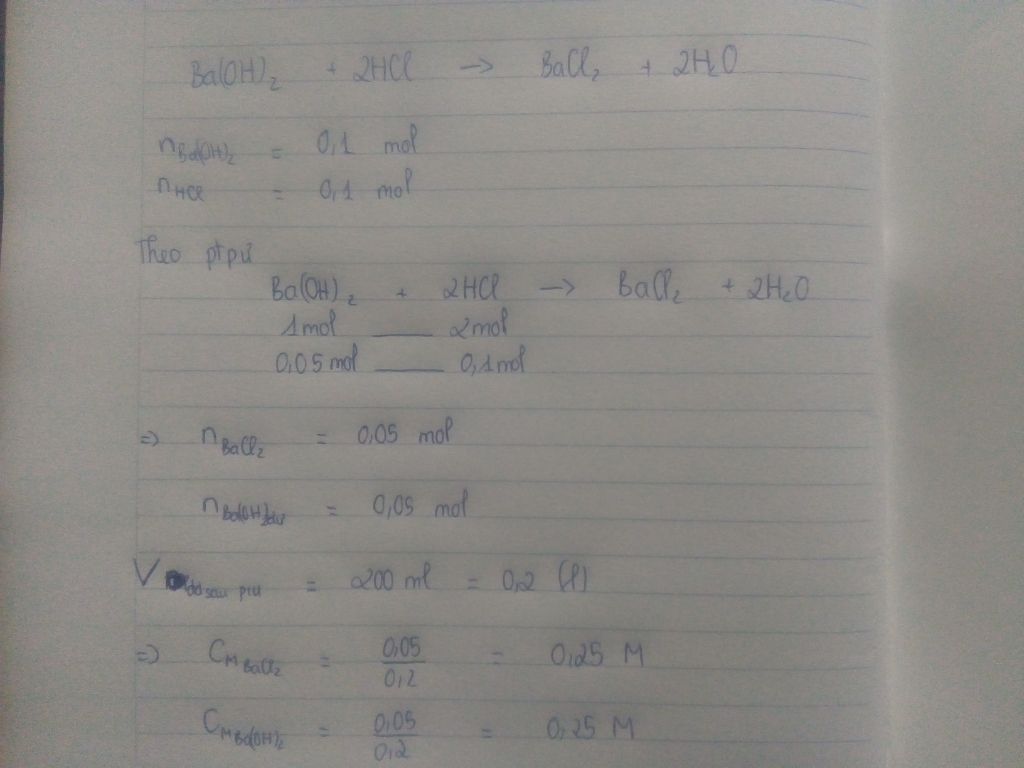 Ba(OH)₂ + 2HCl → BaCl₂ + 2H₂O
nBa(OH)₂ = 0,1 mol
nHCl = 0,1 mol
Theo ptpứ
Ba(OH)₂ + 2HCl → BaCl₂ + 2H₂O
1mol ___ 2mol
0,05 mol ___ 0,1mol
=> nBaCl₂ = 0,05 mol
nBa(OH)₂dư = 0,05 mol
Vdd sau pứ = 200 ml = 0,2 (l)
=> CM BaCl₂ = 0,05/0,2 = 0,25 M
CM Ba(OH)₂ = 0,05/0,2 = 0,25 M